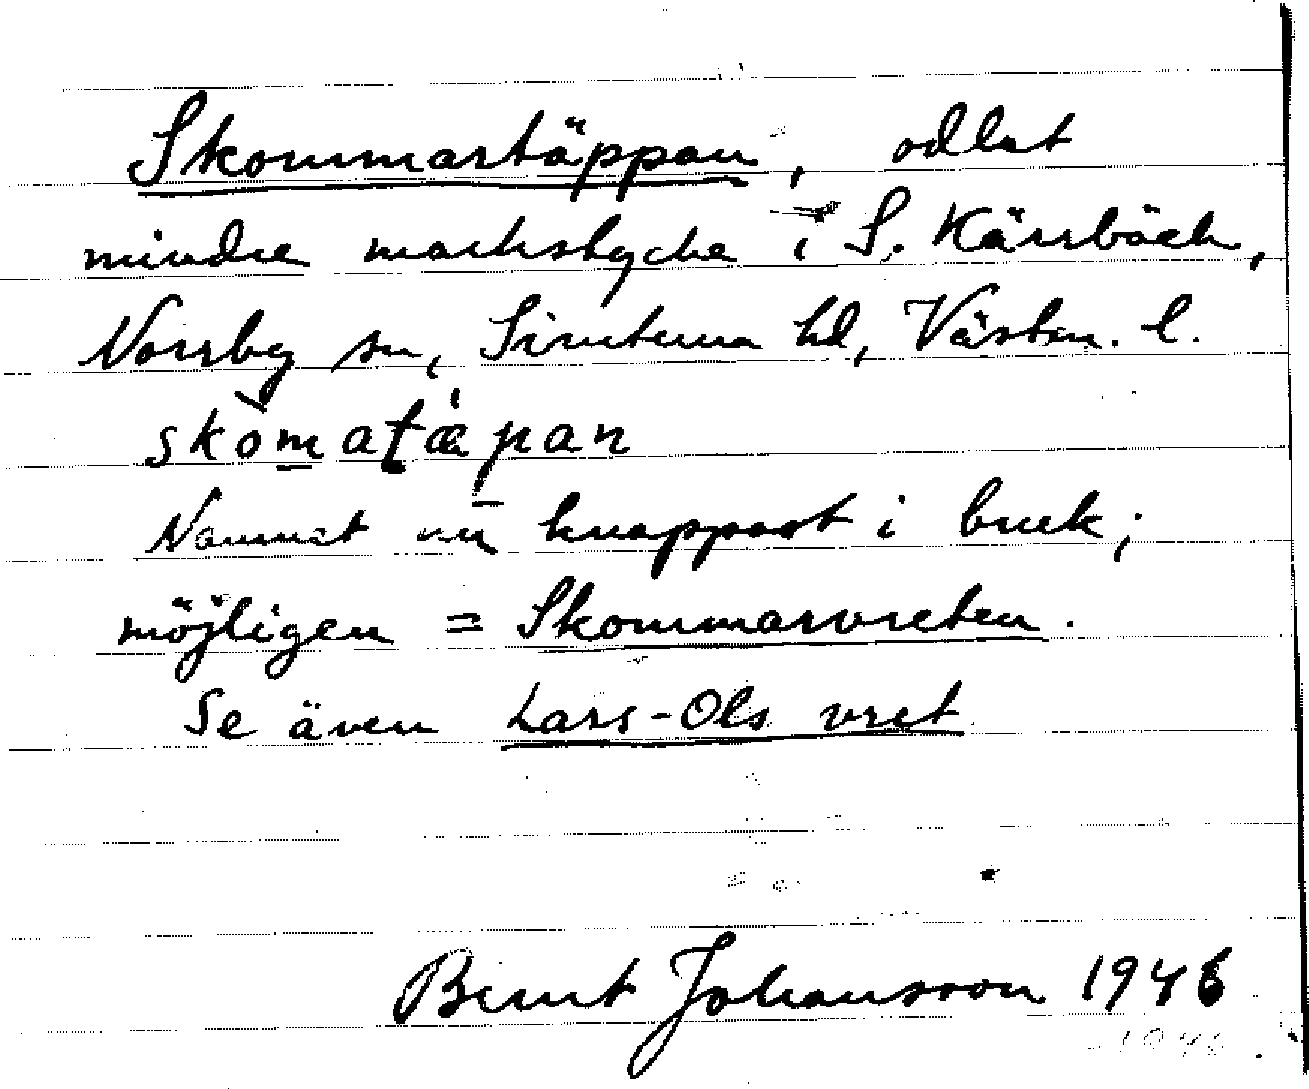 Skommartäppan, odlat
mindre markstycke i S. Kärrbäck,
Norrby sn, Simtuna hd, Västm. l.
skòmatǽpan
Namnet nu knappast i bruk;
möjligen = Skommarvreten.
Se även Lars-Ols vret
Bernt Johansson 1946
1946